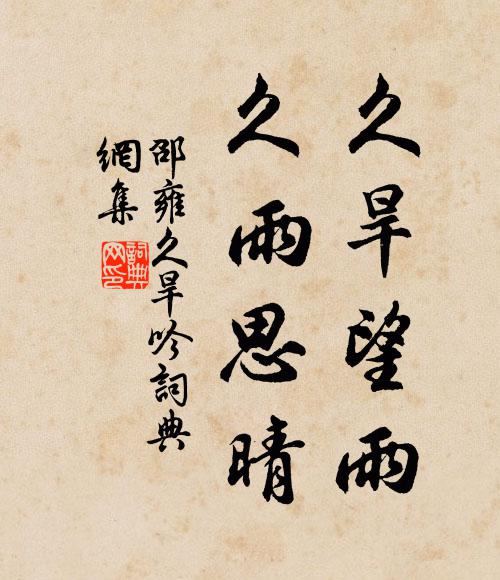 久旱望雨
久雨思晴
邵雍久旱吟詞典
網集
詞典
网印